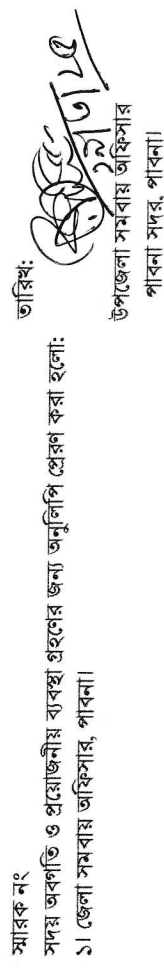 স্মারক নং তারিখ:
সদয় অবগতি ও প্রয়োজনীয় ব্যবস্থা গ্রহণের জন্য অনুলিপি প্রেরণ করা হলো:
১। জেলা সমবায় অফিসার, পাবনা।
উপজেলা সমবায় অফিসার
পাবনা সদর, পাবনা।